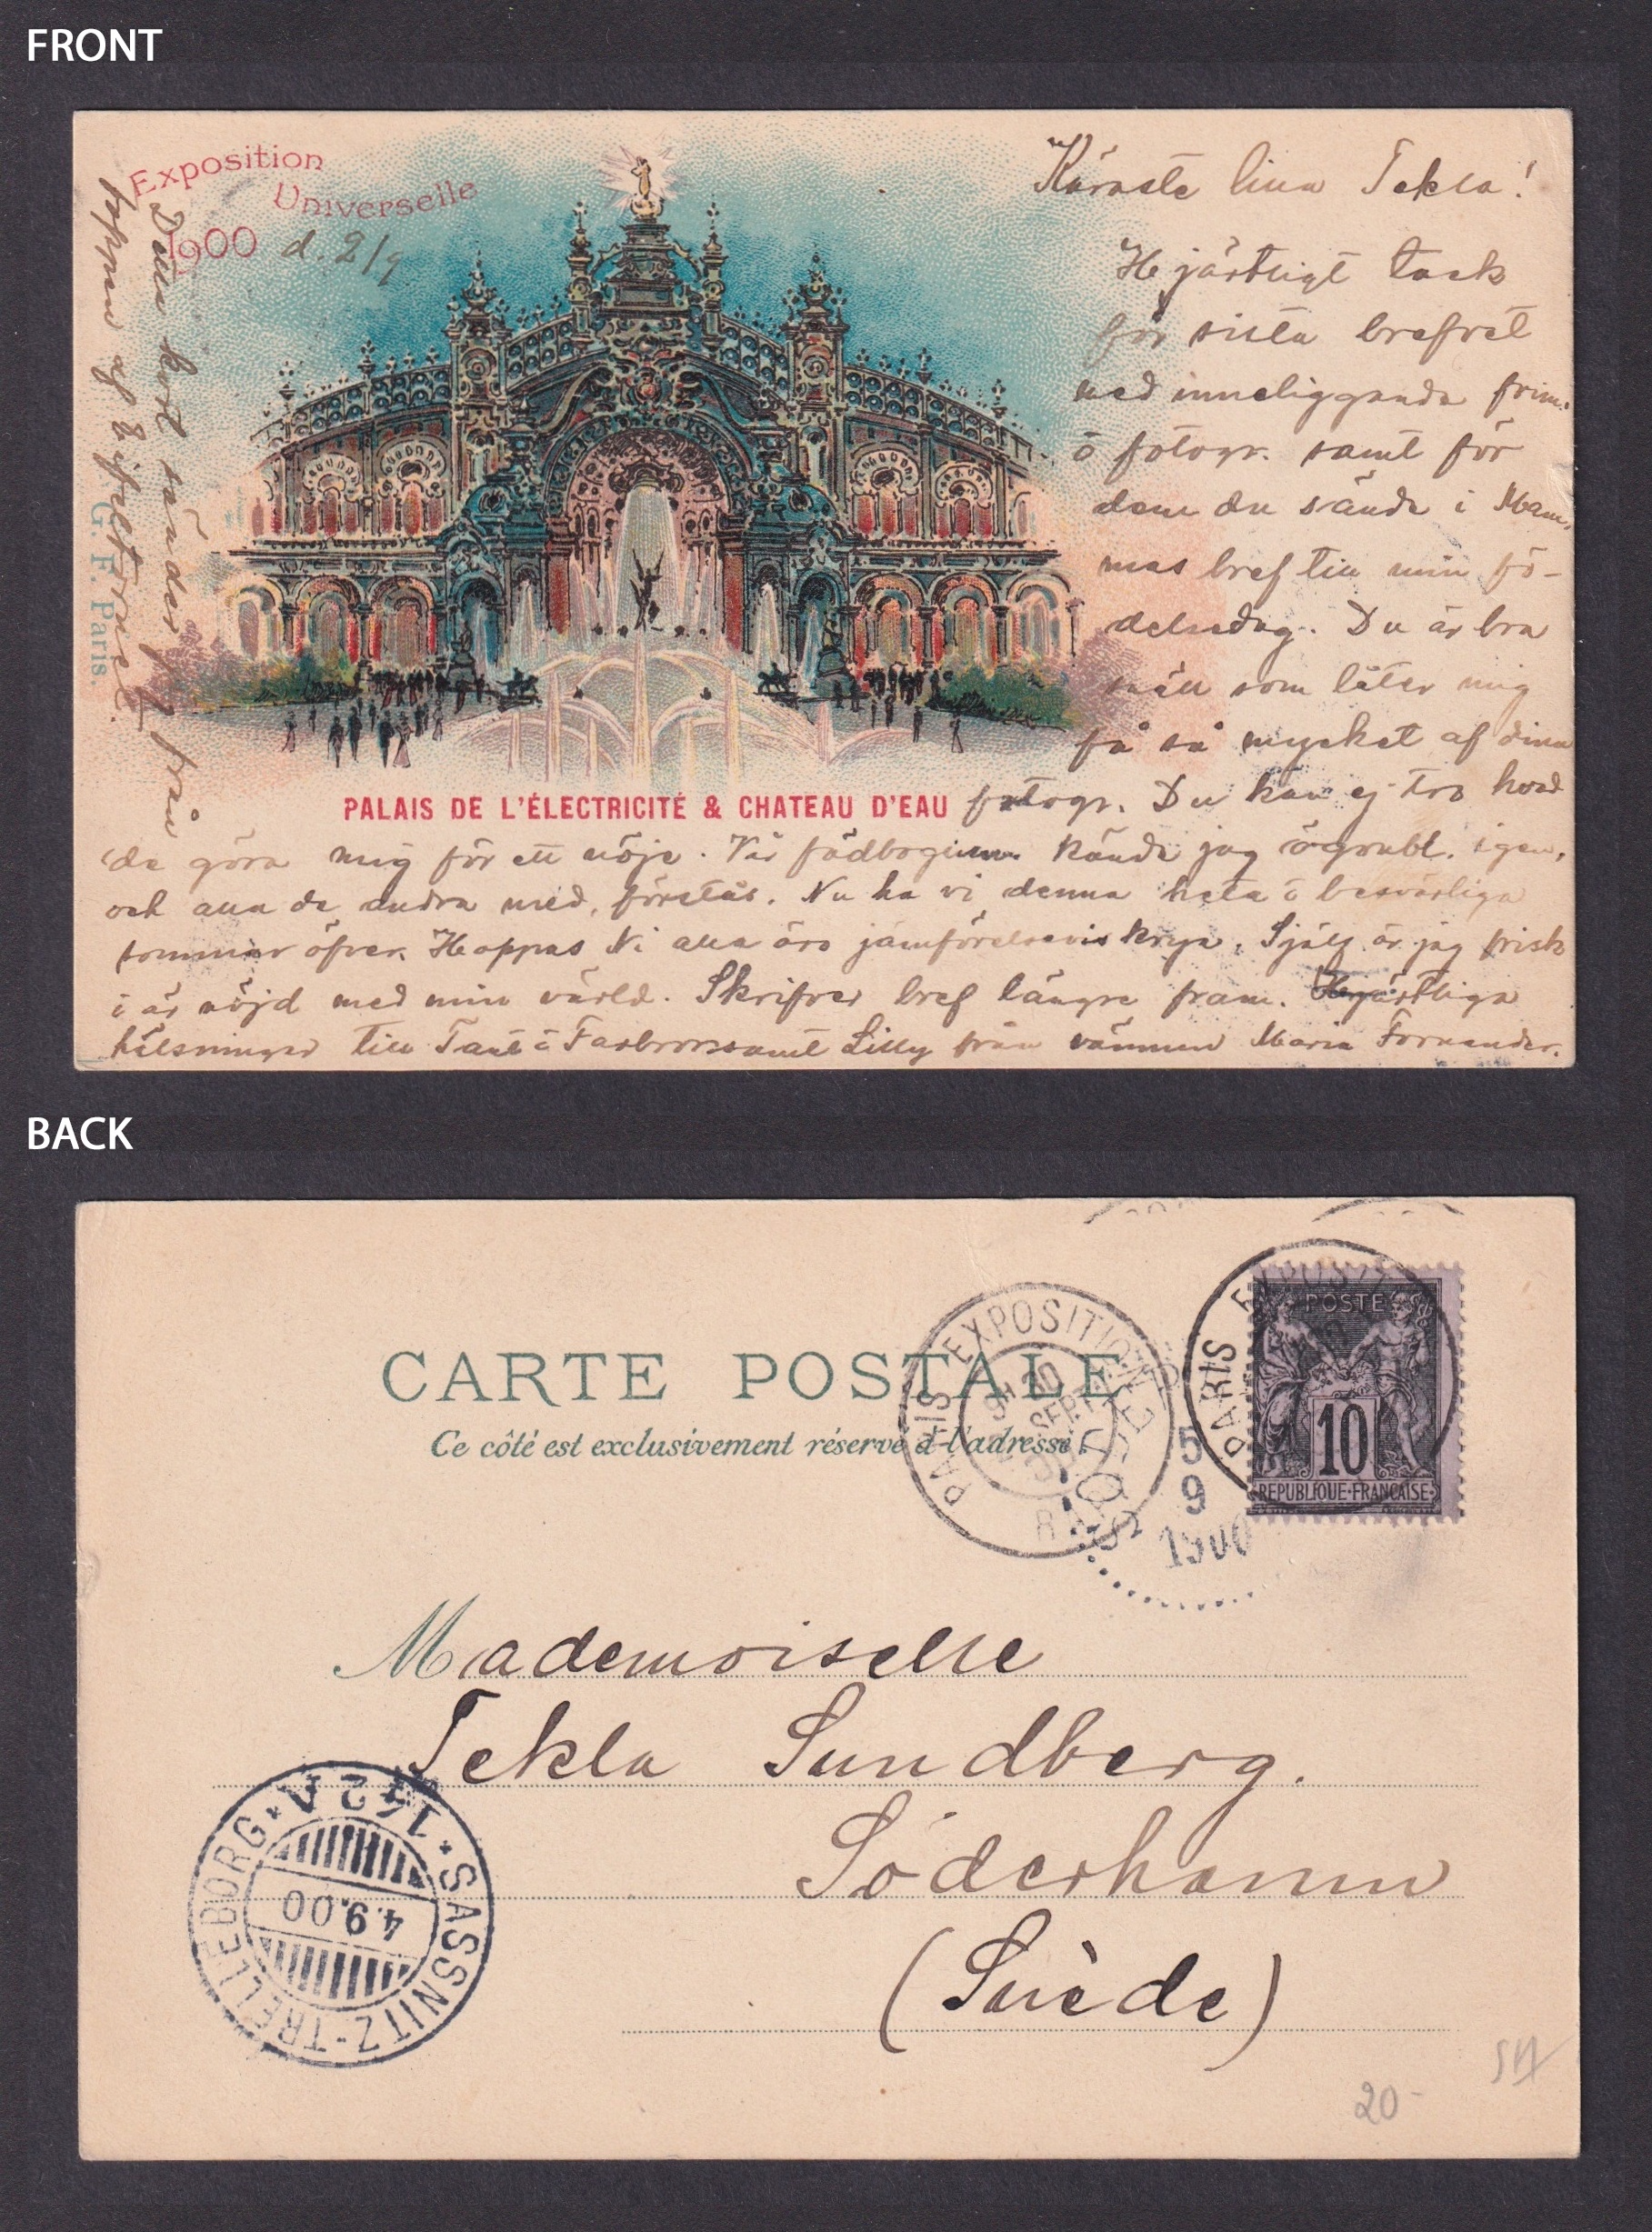 FRONT
Exposition
Universelle
1900 d. 2/9
Detta kort sänder jag från
toppen af Eifeltornet.
G. F. Paris.
Käraste lilla Tekla!
Hjärtligt tack
för sista brefvet
med inneliggande frim.
o fotogr. samt för
dem du sände i Mam-
mas bref till min fö-
delsedag. Du är bra
snäll som låter mig
få så mycket af dina
PALAIS DE L'ÉLECTRICITÉ & CHATEAU D'EAU
fotogr. Du kan ej tro hvad
de göra mig för ett nöje. Vår kände jag igen,
och alla de andra med, förstås. Nu ha vi denna heta o besvärliga
sommar öfver. Hoppas Ni alla äro jämförelsevis krya. Själf är jag frisk
i är nöjd med min värld. Skrifver bref längre fram. Hjärtliga
hälsningar till Tant o Farbror samt Lilly från vännen Maria Fornander.
BACK
CARTE POSTALE
Ce côté est exclusivement réservé à l'adresse.
PARIS EXPOSITION
SEPT
RAPP
PARIS EXPOSIT
POSTE
10
REPUBLIQUE·FRANÇAISE
5
9
1900
Mademoiselle
Tekla Sundberg.
Söderhamn
(Suède)
SASSNITZ-TRELLEBORG
142 A
4.9.00
20-